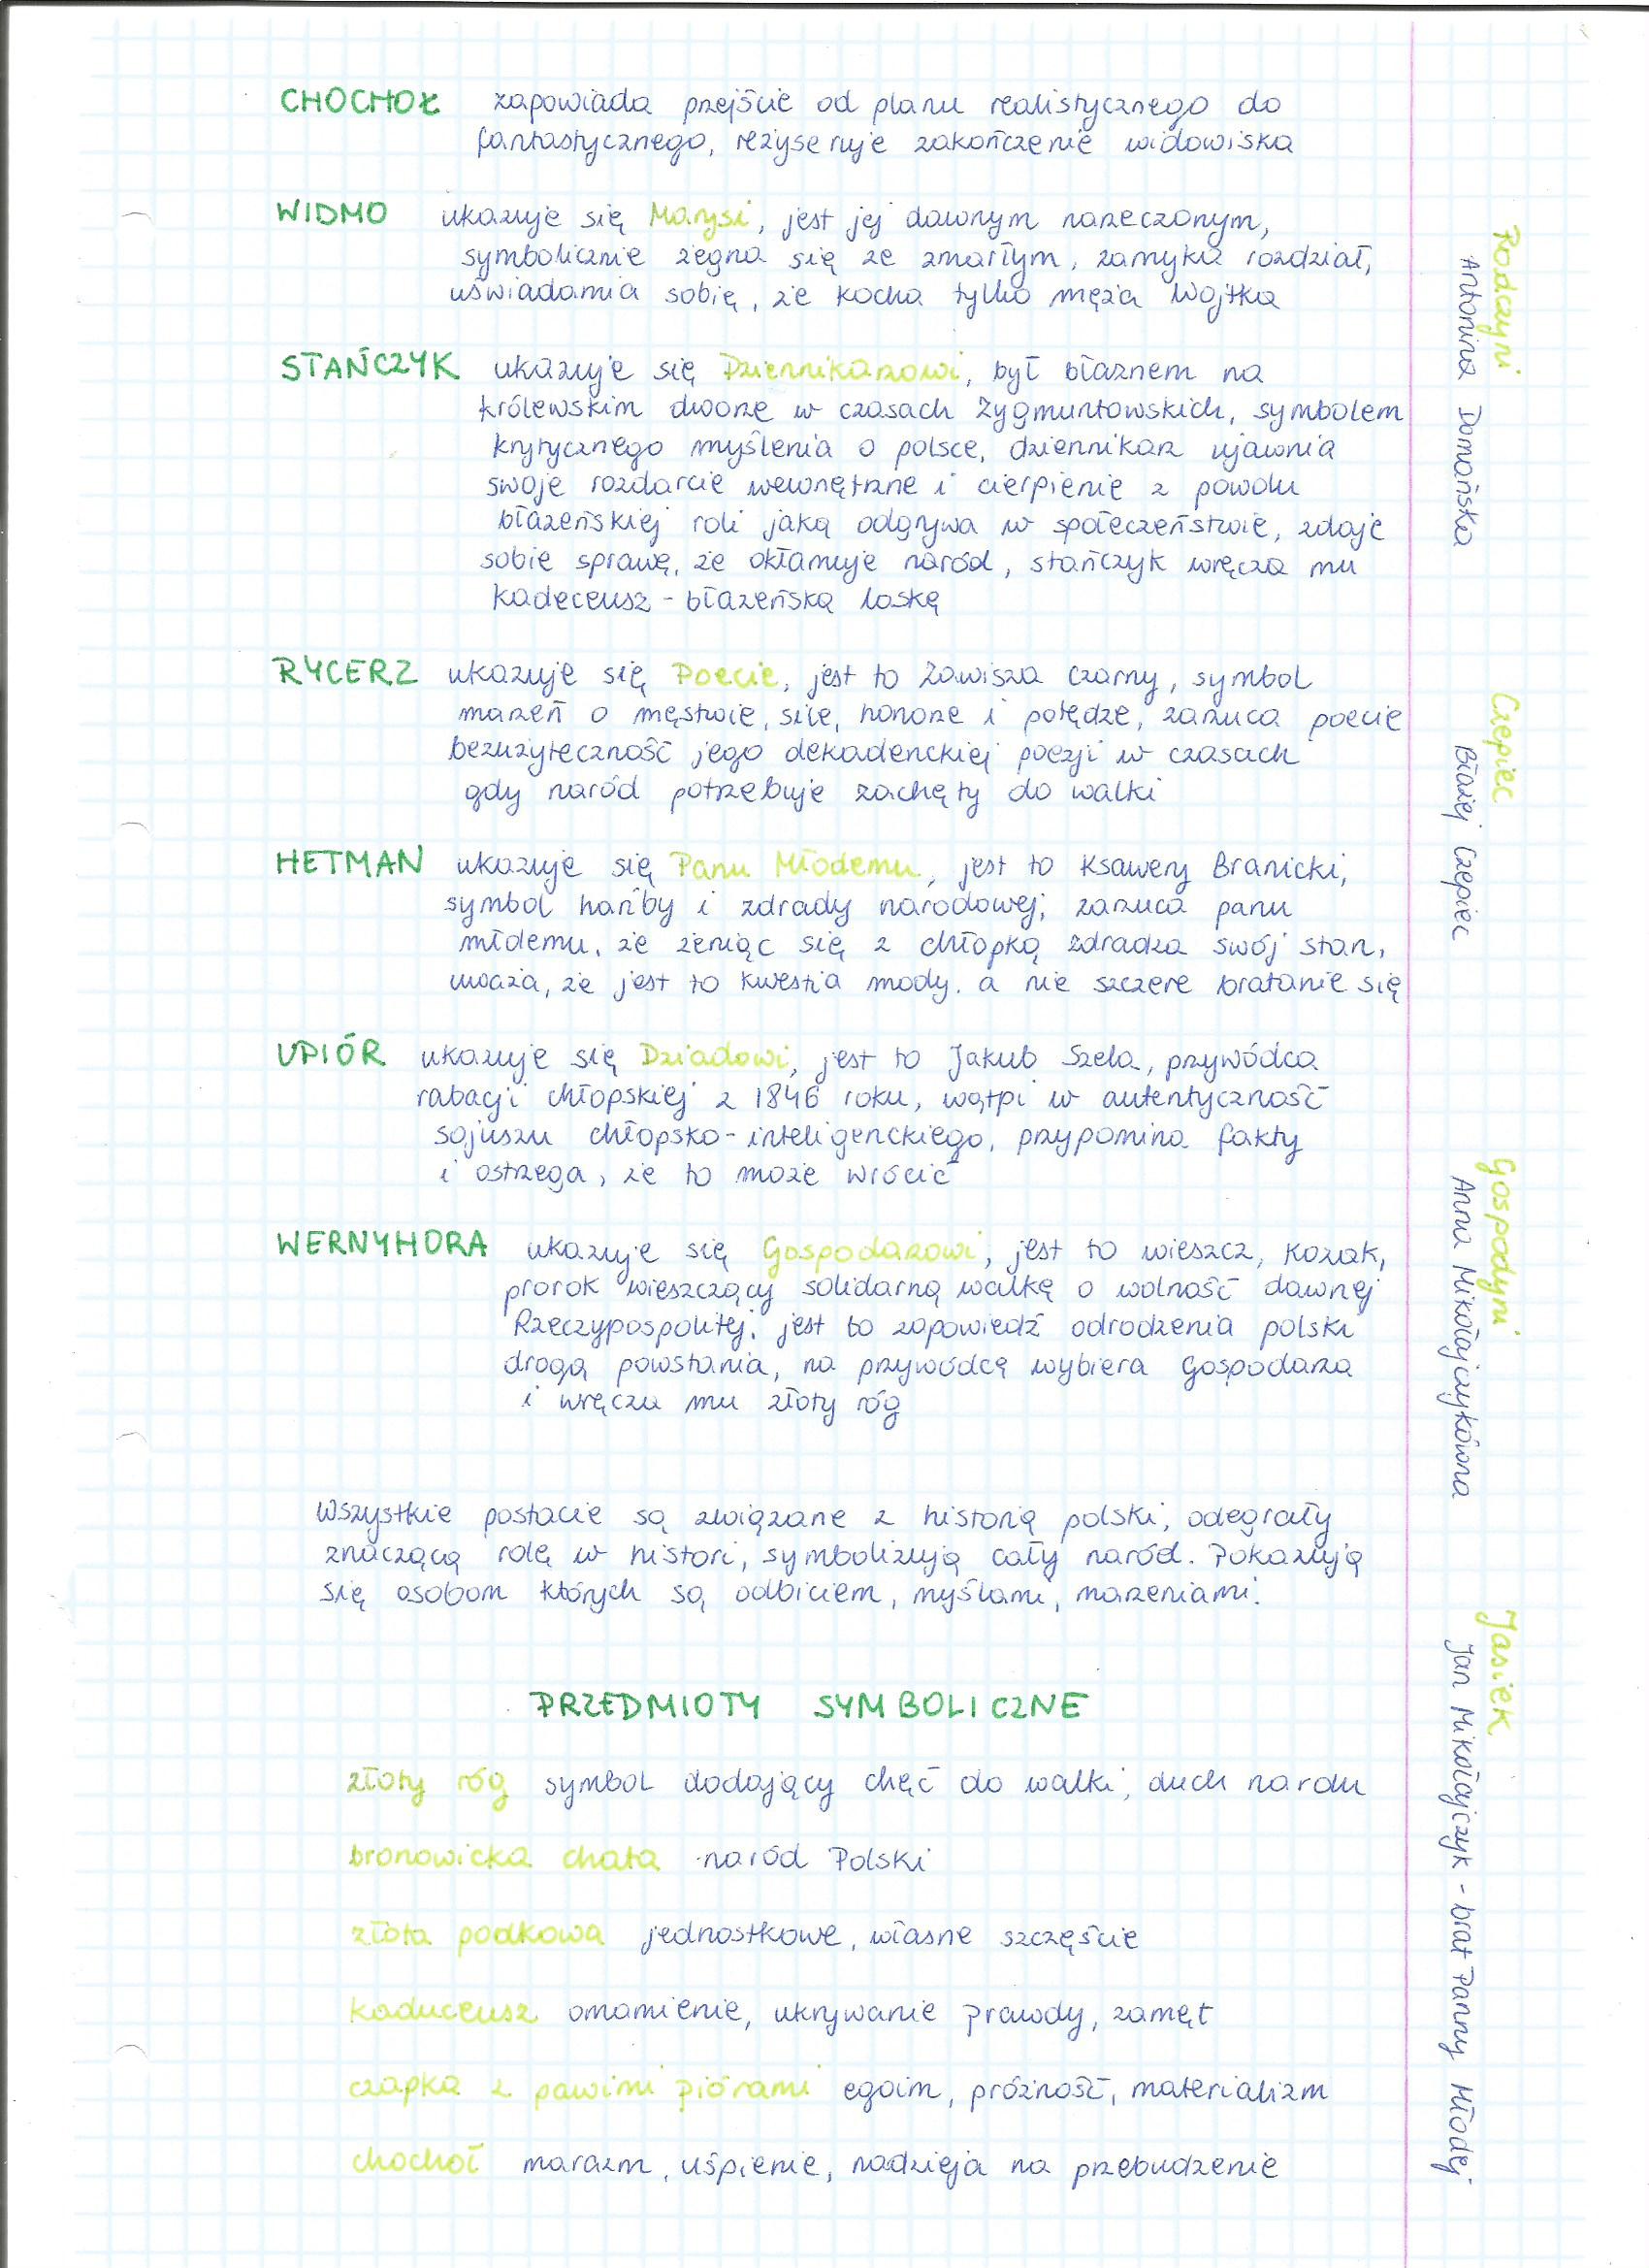 CHOCHOŁ zapowiada przejście od planu realistycznego do
fantastycznego, reżyseruje zakończenie widowiska
WIDMO ukazuje się Marysi, jest jej dawnym narzeczonym,
symbolicznie żegna się ze zmarłym, zamyka rozdział,
uświadamia sobię, że kocha tylko męża Wojtka
STAŃCZYK ukazuje się Dziennikarzowi, był błaznem na
królewskim dworze w czasach Zygmuntowskich, symbolem
krytycznego myślenia o polsce, dziennikarz ujawnia
swoje rozdarcie wewnętrzne i cierpienie z powodu
błazeńskiej roli jaką odgrywa w społeczeństwie, zdaje
sobie sprawę, że okłamuje naród, stańczyk wręcza mu
kadeceusz - błazeńską laskę
RYCERZ ukazuje się Poecie, jest to Zawisza Czarny, symbol
marzeń o męstwie, sile, honorze i potędze, zarzuca poecie
bezużyteczność jego dekadenckiej poezji w czasach
gdy naród potrzebuje zachęty do walki
HETMAN ukazuje się Panu Młodemu, jest to Ksawery Branicki,
symbol hańby i zdrady narodowej, zarzuca panu
młdemu, że żeniąc się z chłopką zdradza swój stan,
uważa, że jest to kwestia mody, a nie szczere bratanie się
UPIÓR ukazuje się Dziadowi, jest to Jakub Szela, przywódca
rabacji chłopskiej z 1846 roku, wątpi w autentyczność
sojuszu chłopsko-inteligenckiego, przypomina fakty
i ostrzega, że to może wrócić
WERNYHORA ukazuje się Gospodarzowi, jest to wieszcz, kozak,
prorok wieszczący solidarną walkę o wolność dawnej
Rzeczypospolitej, jest to zapowiedź odrodzenia polski
drogą powstania, na przywódcę wybiera Gospodarza
i wręcza mu złoty róg
Wszystkie postacie są związane z historią polski, odegrały
znaczącą rolę w histori, symbolizują cały naród. Pokazują
się osobom których są odbiciem, myślami, marzeniami.
PRZEDMIOTY SYMBOLICZNE
złoty róg symbol dodający chęć do walki, duch nardu
bronowicka chata naród Polski
złota podkowa jednostkowe, własne szczęście
kaduceusz omamienie, ukrywanie prawdy, zamęt
czapka z pawimi piórami egoim, próżność, materializm
chochoł marazm, uśpienie, nadzieja na przebudzenie
Radczyni
Antonina Domańska
Czepiec
Błażej Czepiec
Gospodyni
Anna Mikołajczykówna
Jasiek
Jan Mikołajczyk - brat Panny Młodej